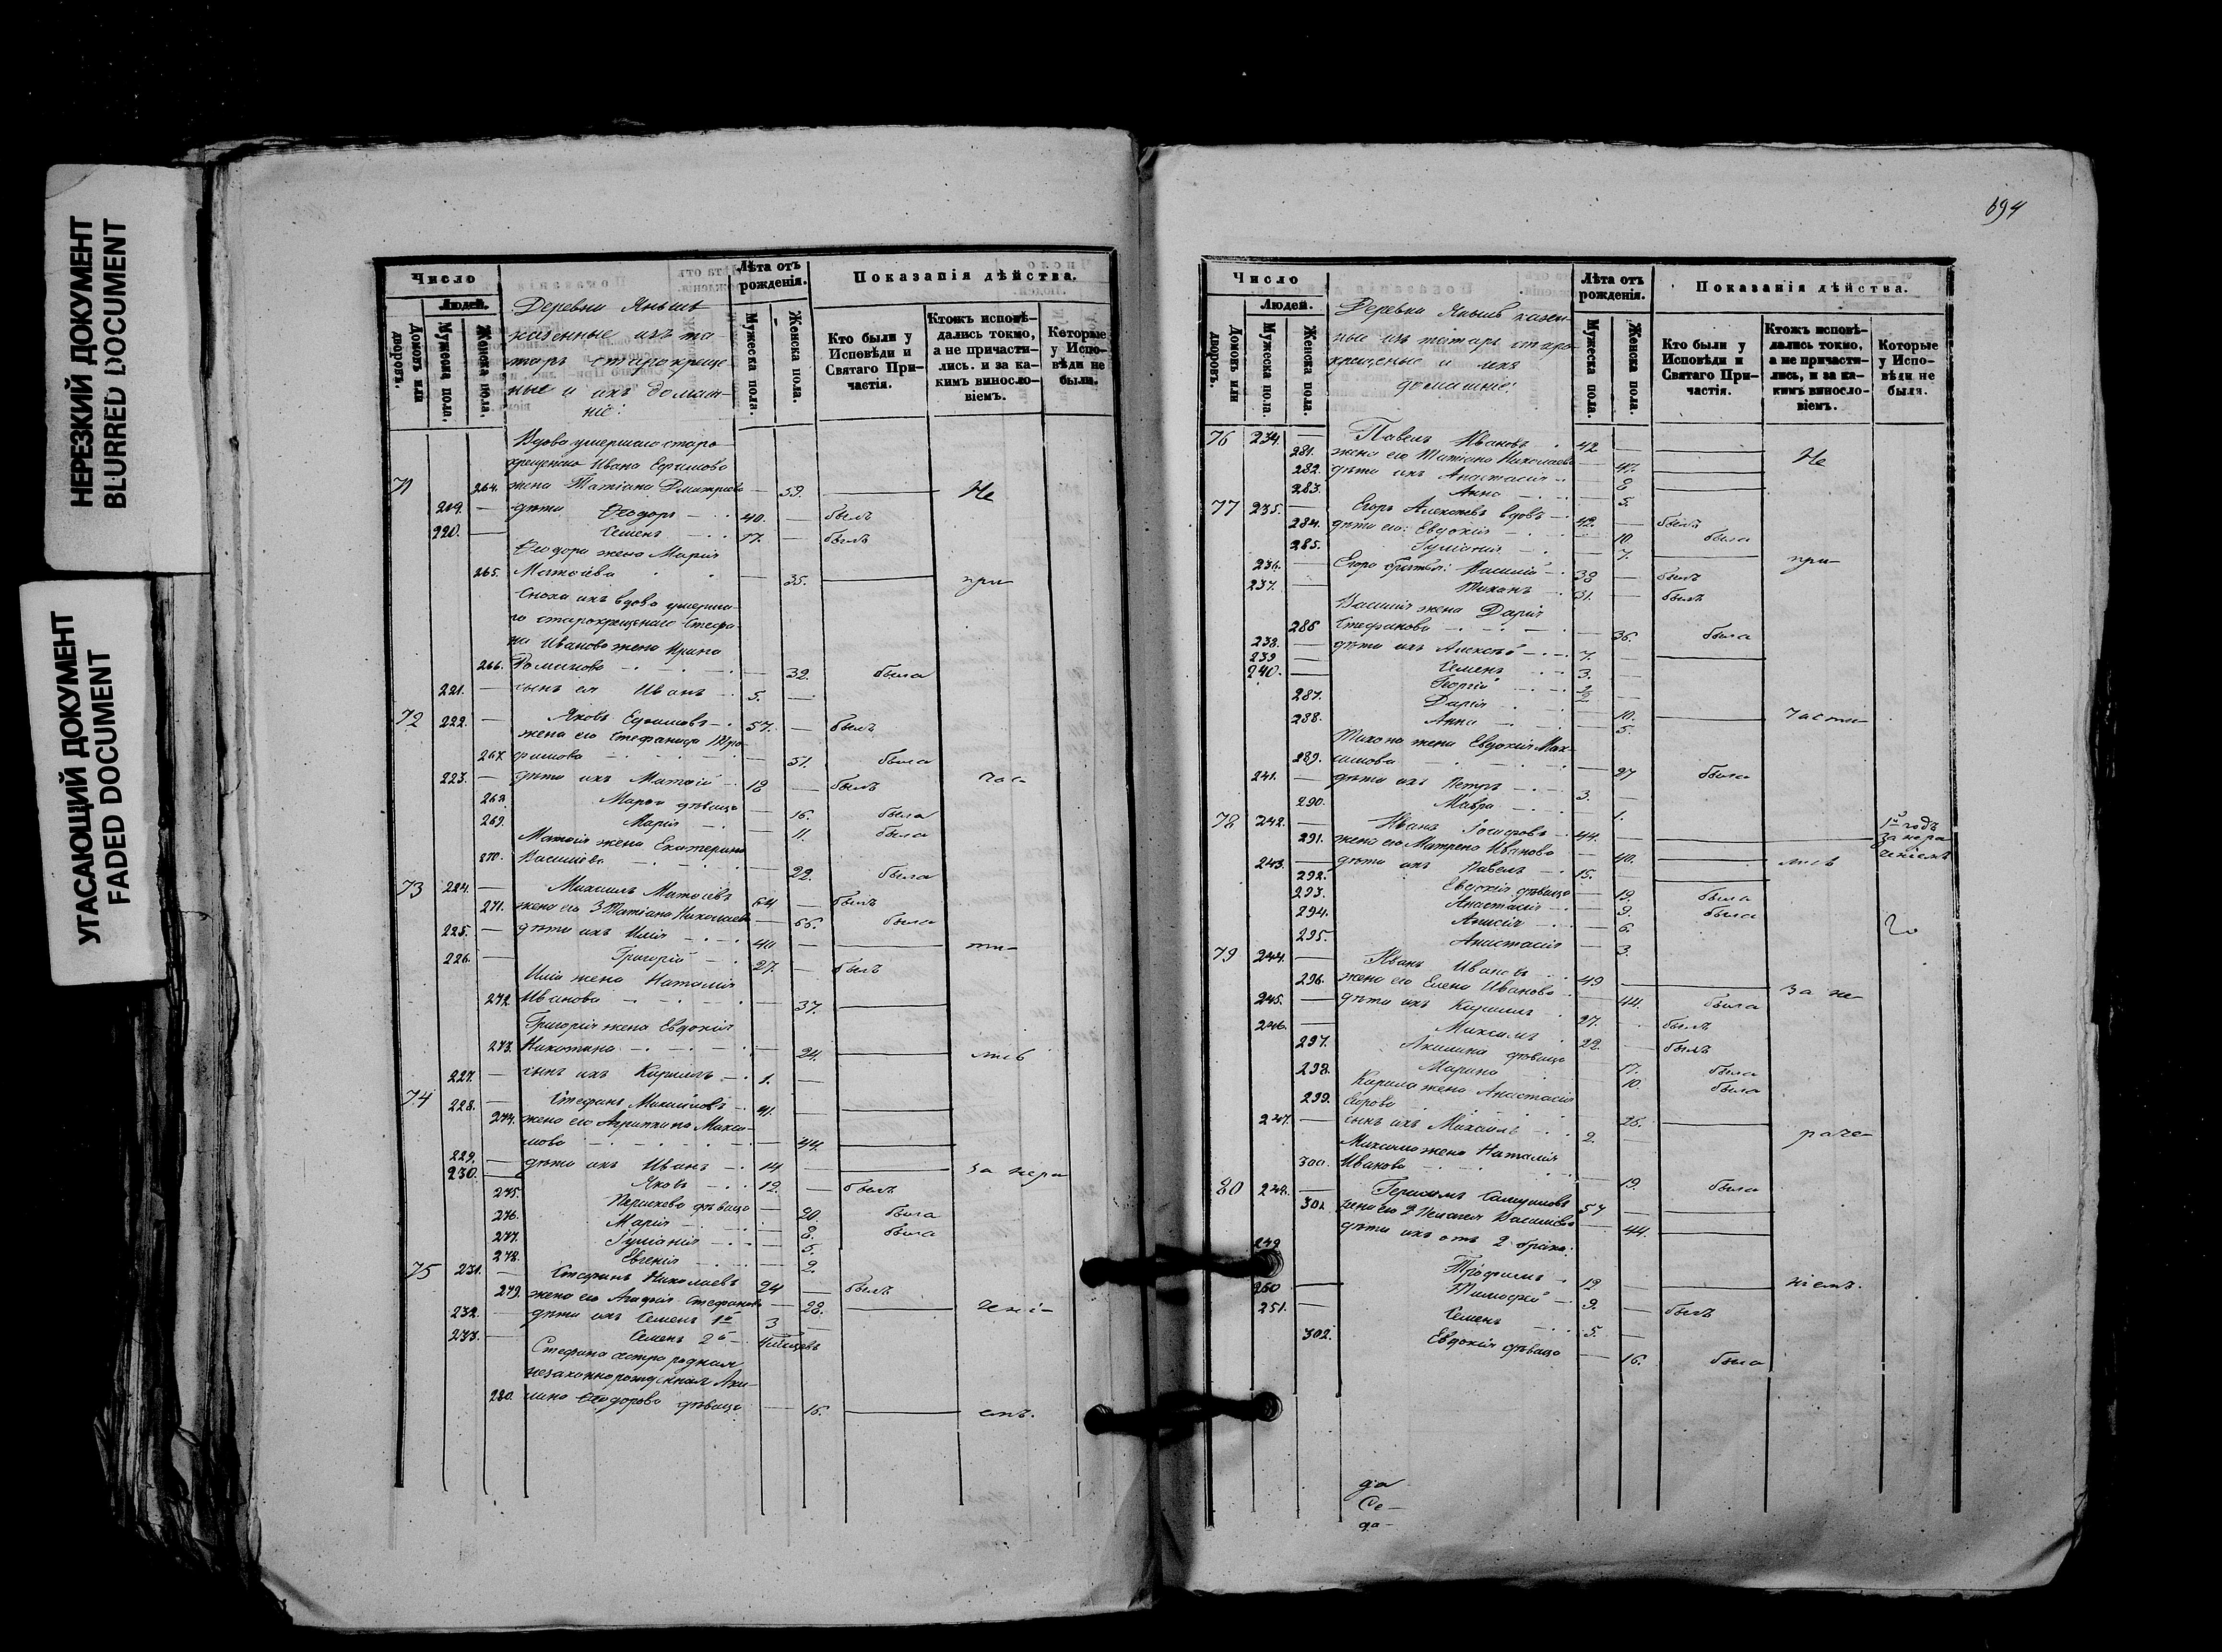 НЕРЕЗКИЙ ДОКУМЕНТ
BLURRED DOCUMENT
УГАСАЮЩИЙ ДОКУМЕНТ
FADED DOCUMENT
Число
Людей.
Домовъ или дворовъ.
Мужеска пола.
Женска пола.
Деревни Янышѣ
казенные изъ та-
таръ старокреще-
ные и ихъ домаш-
ніе:
Лѣта отъ рожденія.
Мужеска пола.
Женска пола.
Показанія дѣйства.
Кто были у Исповѣди и Святаго При-частія.
Ктожъ исповѣ-дались токмо, а не причасти-лись. и за ка-кимъ виносло-віемъ.
Которые у Испо-вѣди не были.
Вдова умершаго старо-
крещенаго Ивана Ефимова
71 264. жена Татіана Дмитріева — 59. — Не
219. — дѣти Ѳеодоръ 40. — былъ
220. — Семенъ 17. — былъ
Ѳеодора жена Марія
265. Матѳіева — 35. — при-
Сноха ихъ вдова умерша-
го старокрещенаго Стефа-
на Иванова жена Ирина
266. Романова — 32. была
221. — сынъ ея Иванъ 5. —
72 222. — Яковъ Ефимовъ 57. — былъ
жена его Стефанида Тро-
267. фимова — 51. была
223. — дѣти ихъ Матѳій 18 — былъ час-
268. Марѳа дѣвица — 16. была
269. Марія — 11. была
Матѳія жена Екатерина
270. Василіева — 22. была
73 224. — Михаилъ Матѳіевъ 64 — былъ
271. жена его 3 Татіана Николаева — 66. была
225. — дѣти ихъ Илія 40 — ти-
226. — Григорій 27. — былъ
Иліи жена Наталія
272. Иванова — 37. —
Григорія жена Евдокія
273. Никитина — 24. — лись
227. — сынъ ихъ Кириллъ 1. —
74 228. — Стефанъ Михайловъ 41. —
274. жена его Агриппина Макси-
мова — 44. —
229. — дѣти ихъ Иванъ 14. — за нера
230. — Яковъ 12. — былъ
275. Параскева дѣвица — 20. была
276. Марія — 8. была
277. Іуліанія — 5.
278. Евгенія — 2.
75 231. — Стефанъ Николаевъ 24 — былъ
279. жена его Агафія Стефанова — 28. — чені-
232. — дѣти ихъ Семенъ 1й 3 —
233. — Семенъ 2й
Стефана сестра родная
незаконнорожденная Аки-
280. лина Ѳеодорова дѣвица — 16. — емъ.
694
Число
Людей.
Домовъ или дворовъ.
Мужеска пола.
Женска пола.
Деревни Янышѣ казен-
ные изъ татаръ старо-
крещеные и ихъ
домашніе:
Лѣта отъ рожденія.
Мужеска пола.
Женска пола.
Показанія дѣйства.
Кто были у Исповѣди и Святаго При-частія.
Ктожъ исповѣ-дались токмо, а не причасти-лись, и за ка-кимъ виносло-віемъ.
Которые у Испо-вѣди не были.
76 234. — Павелъ Ивановъ 42 —
281. жена его Татіана Николаева — 47. — Не
282. дѣти ихъ Анастасія — 8 —
283. Анна — 5.
77 235. — Егоръ Алексѣевъ вдовъ 42. — былъ
284. дѣти его: Евдокія — 10 была
285. Іуліанія — 7. — при-
236. — Егора братья: Василій 38 — былъ
237. — Тихонъ 31. — былъ
Василія жена Дарія
286 Стефанова — 36. была
238. — дѣти ихъ Алексѣй 7. —
239 — Семенъ 3. —
240. — Георгій 2 —
287. Дарія — 10. — части-
288. Анна — 5.
Тихона жена Евдокія Мак-
289. симова — 27 была
241. — дѣти ихъ Петръ 3. —
290. Мавра — 1.
78 242. — Иванъ Іосифовъ 44. — 1й годъ
за нера
ченіемъ
291. жена его Матрена Иванова — 40. — лись
243. — дѣти ихъ Павелъ 15. —
292. Евдокія дѣвица — 19. была
293. Анастасія — 9. была
294. Анисія — 6.
295. Анастасія — 3.
79 244. — Иванъ Ивановъ 49 — за не-
296. жена его Елена Иванова — 44. была
245. — дѣти ихъ Кириллъ 27. — былъ
246. — Максимъ 22. — былъ
297. Акилина дѣвица — 17. была
298. Марина — 10. была
Кирила жена Анастасія
299. Егорова — 26. —
247. — сынъ ихъ Михаилъ 2. — раче-
Максима жена Наталія
300. Иванова — 19. была
80 248. — Герасимъ 57 —
301. жена его 2 Пелагея Василіева — 44. —
дѣти ихъ отъ 2 брака:
249 Трофимъ 12 — ніемъ.
250 — Тимоѳей 9. — былъ
251. — Семенъ 5. —
302. Евдокія дѣвица — 16. была
да
Се-
да-